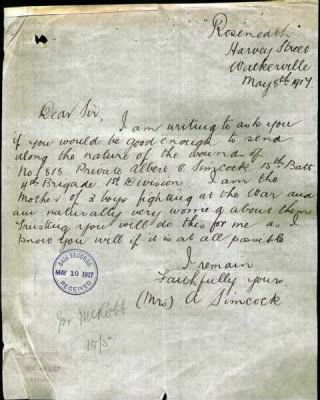 Roseneath
Harvey Street
Walkerville
May 8th 1917
Dear Sir,
I am writing to ask you
if you would be good enough to send
along the nature of the wound of
No 818 Private Albert V Simcock 15th Batt
4th Brigade 1st Division. I am the
Mother of 3 boys fighting at the War and
am naturally very worried about them
Trusting you will do this for me as I
know you will if it is at all possible
I remain
Faithfully yours
(Mrs) A Simcock
BASE RECORDS
MAY 10 1917
RECEIVED
10/5